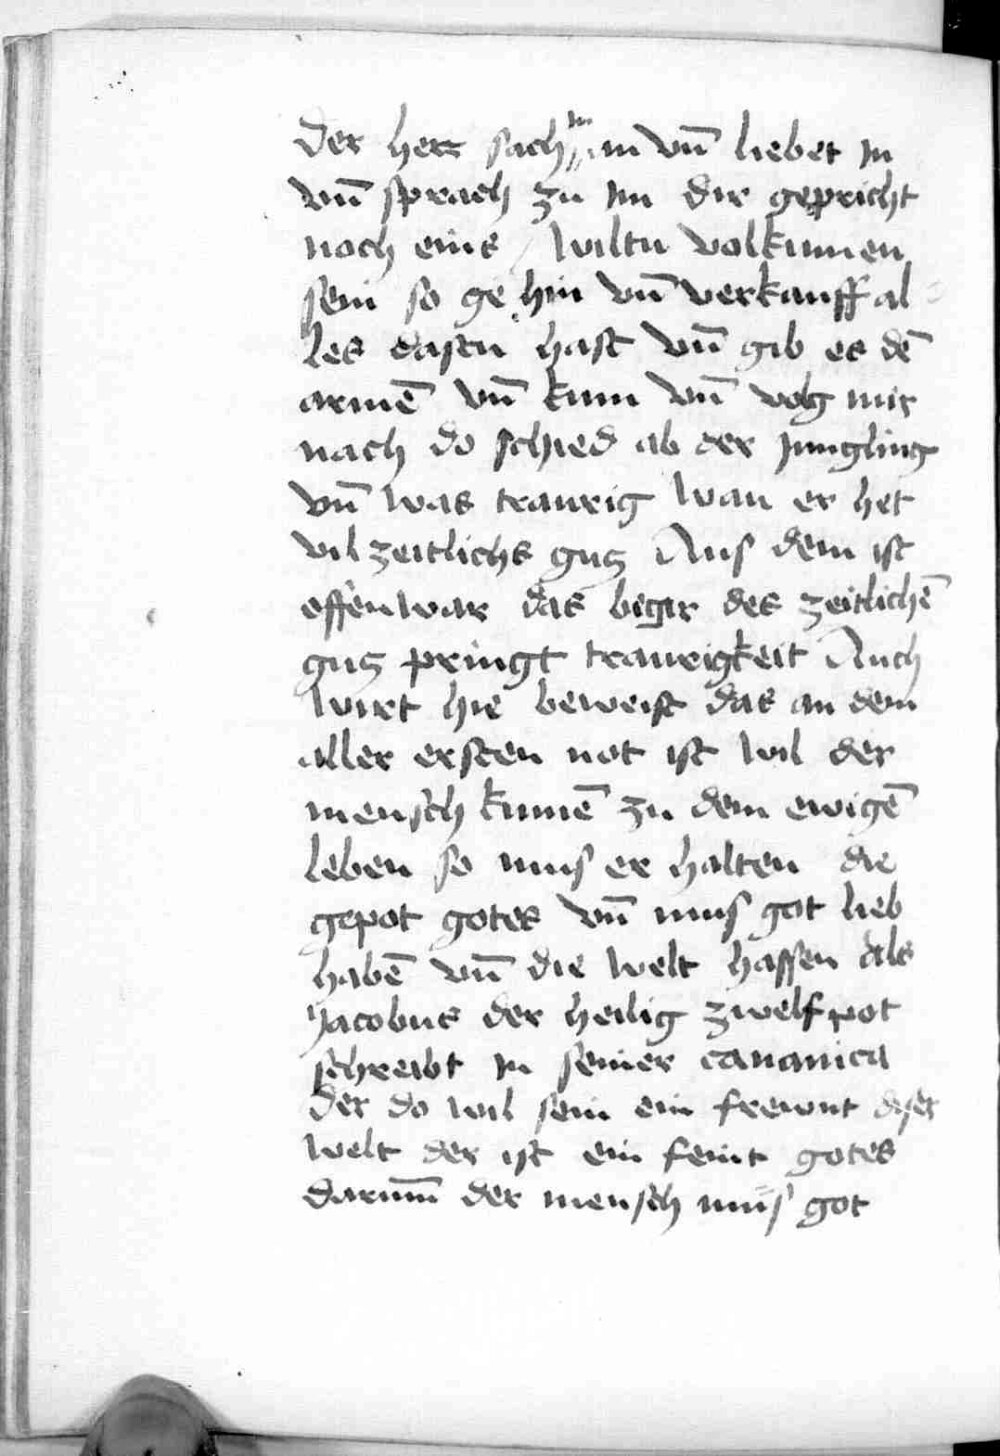 Der herr sach im an vnd̄ liebet in
vn̄ sprach zu im dir gepricht
noch eins / wiltu volkumen
sein so ge hin vn̄ verkauff al
les dastu hast vn̄ gib es dē
armē vn̄ kum vn̄ volg mir
nach do schied ab der Jungling
vn̄ was traurig wan er het
vil zeitlichs gutz Aus dem ist
offenwar das begir des zeitlichē
gutz pringt traurigkeit Auch
wirt hie beweist das an dem
aller ersten not ist wil der
mensch kumē zu dem ewigē
leben so mus er halten die
gepot gotes vn̄ mus got lieb
habē vn̄ die welt hassen als
Jacobus der heilig zwelfpot
schreibt in seiner cananica
Der do wil sein ein frewnt diser
welt der ist ein feint gotes
darum̄ der mensch mus got